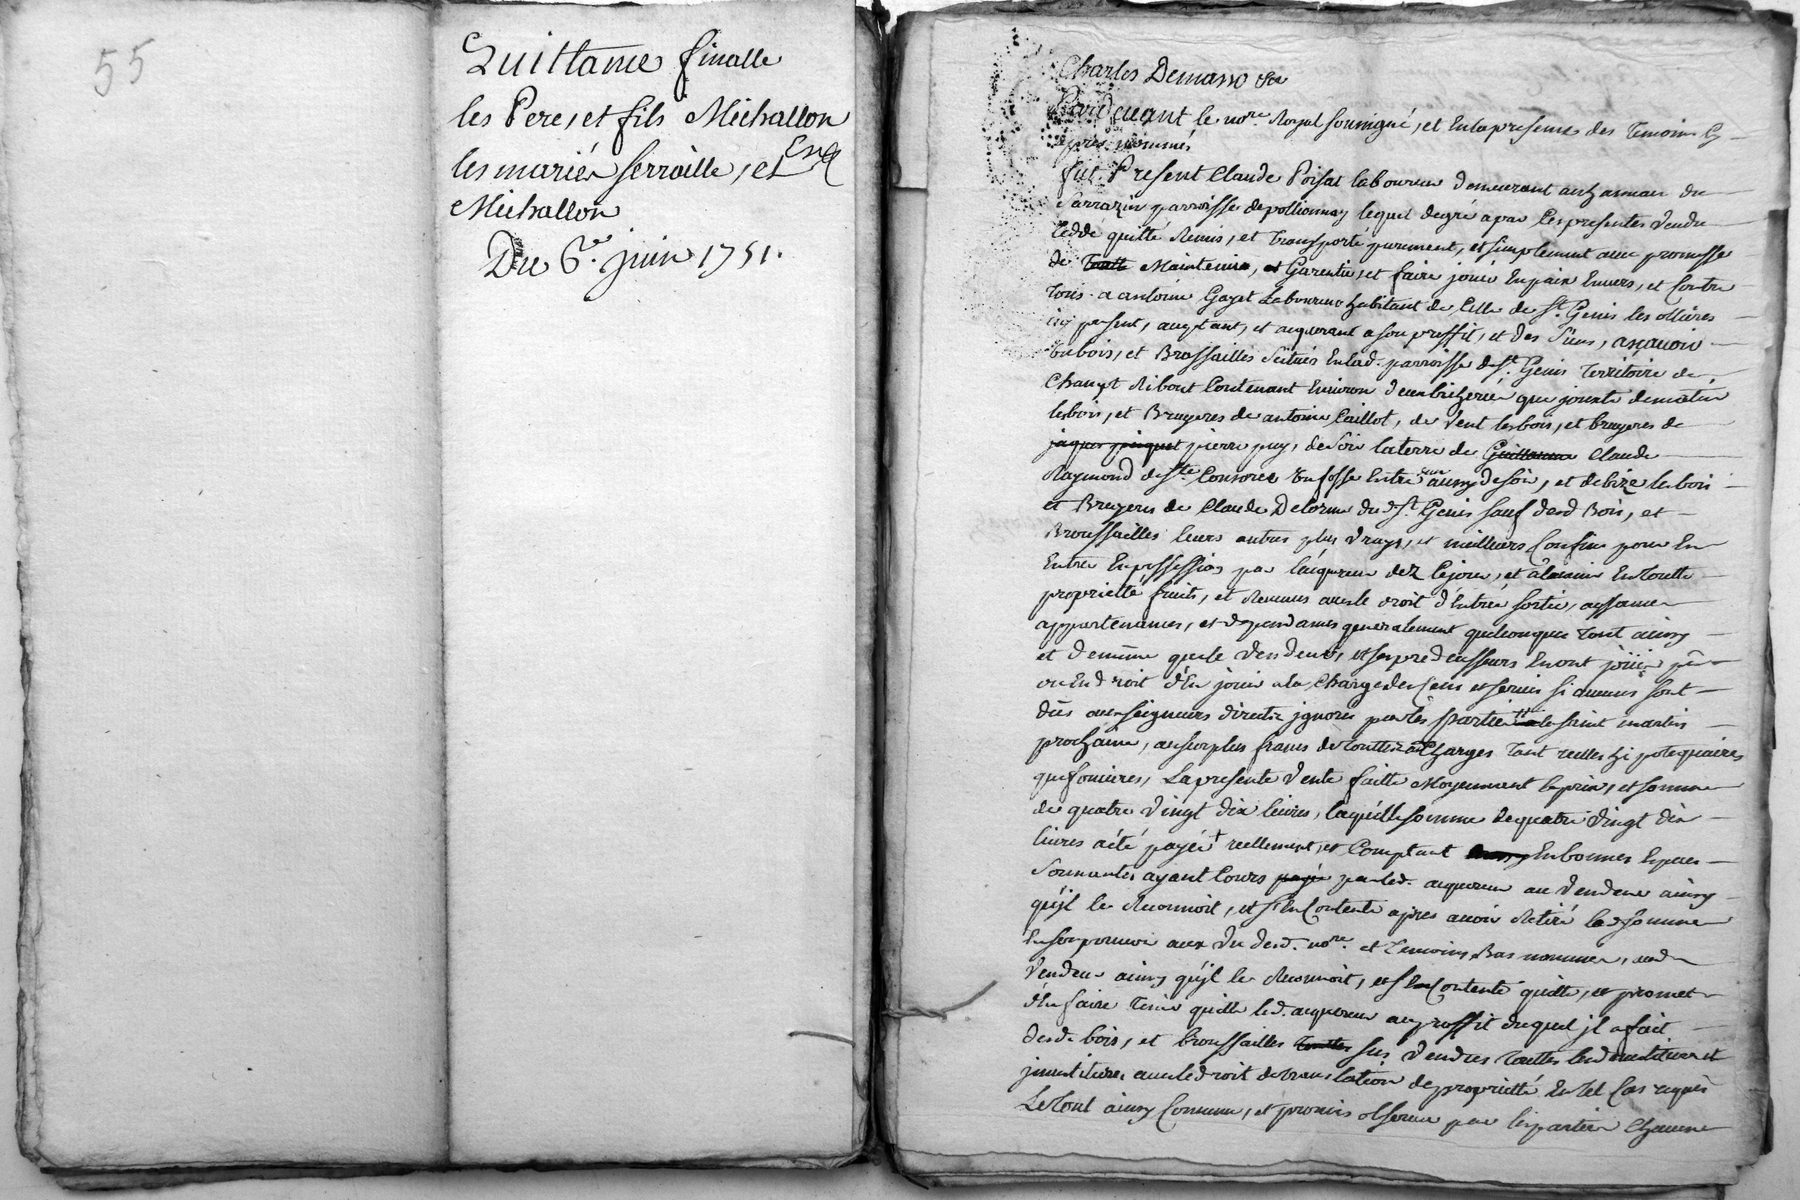 55
Quittance finalle
les Pere, et fils Michallon
les mariés serraille, et
Michallon
Du 6e. juin 1751.
Charles Demasso
Pardevant le nore. Royal soussigné, et en la presence des Temoins Cy
apres nommés
fut Present Claude Poisat laboureur demeurant au hameau du
Sarrazin parroisse de pollionnay lequel degré a par les presentes Vendu
Ceddé quitté Remis, et transporté purement, et simplement avec promesse
de Maintenir, et Garentir, et faire jouir En paix Envers, et Contre
Tous a antoine Gayet Laboureur habitant de Celle de St. Genis les ollieres
icy present, acceptant, et acquerant a son proffit, et des Siens, asçavoir
Un bois, et Brossailles Scitués En lad. parroisse de St. Genis Territoire de
Champt Ribout Contenant Environ deux bicherées que jouxte de matin
les bois, et Bruyeres de antoine Caillot, de Vent les bois, et bruyeres de
pierre puy, de Soir la terre de Claude
Raymond de Ste. Consorce un fosse Entre aussy de soir, et de bize les bois
et Bruyeres de Claude Delorme dud. St. Genis sauf desd Bois, et
Broussailles leurs autres plus vrays, et meilleurs Confins pour En
Entrer En possession par l'acquereur dez Cejour, et a l'avenir En toutte
proprietté fruits, et Revenus avec le droit d'Entrée sortie, aysances
appartenances, et dependances generalement quelconques Tout ainsy
et de même que le Vendeur, et ses predecesseurs En ont joüi
ou En droit d'En jouir a la Charge des Cens et servis si aucuns sont
dûs aux seigneurs directs ignorés par les parties la saint martin
prochaine, au surplus francs de touttes Charges tant reelles hipotequaires
que foncieres, La presente Vente faitte Moyennant le prix, et somme
de quatre Vingt dix livres, laquelle somme de quatre Vingt dix
livres a été payée † reellement, et Comptant En bonnes Especes
Sonnantes ayant Cours par led. acquereur au Vendeur ainsy
qu'jl le Reconnoit, et s'En Contente apres avoir Retiré lad somme
En son pouvoir aux vu desd. nore. et Temoins Bas nommés,
Vendeur ainsy qu'jl le Reconnoit, et s'En Contente quitte, et promet
d'En faire Tenir quitte led. acquereur au proffit duquel jl a fait
desd. bois, et broussailles sus Vendues Touttes les demitions et
jnvestitures avec le droit de translation de proprietté En tel Cas requis
Le tout ainsy Convenu, et promis observer par les parties Chacune